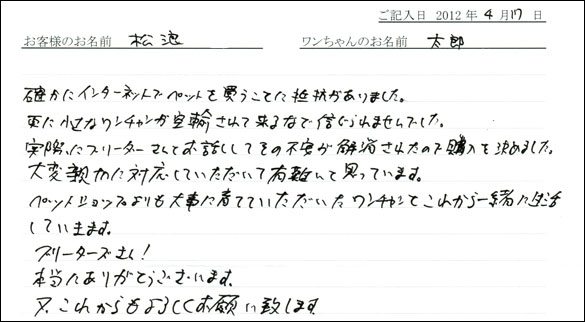 ご記入日 2012年 4月17日
お客様のお名前 松浪 ワンちゃんのお名前 太郎
確かにインターネットでペットを買うことに抵抗がありました。
更に小さなワンチャンが空輸されて来るなで信じられませんでした。
実際にブリーターさんとお話ししてその不安が解消されたので購入を決めました。
大変親切に対応していただいて有難いて思っています。
ペットショップよりも大事に育てていただいたワンチャンとこれから一緒に生活
していきます。
ブリーターズさん!
本当にありがとうございます。
又、これからもよろしくお願い致します